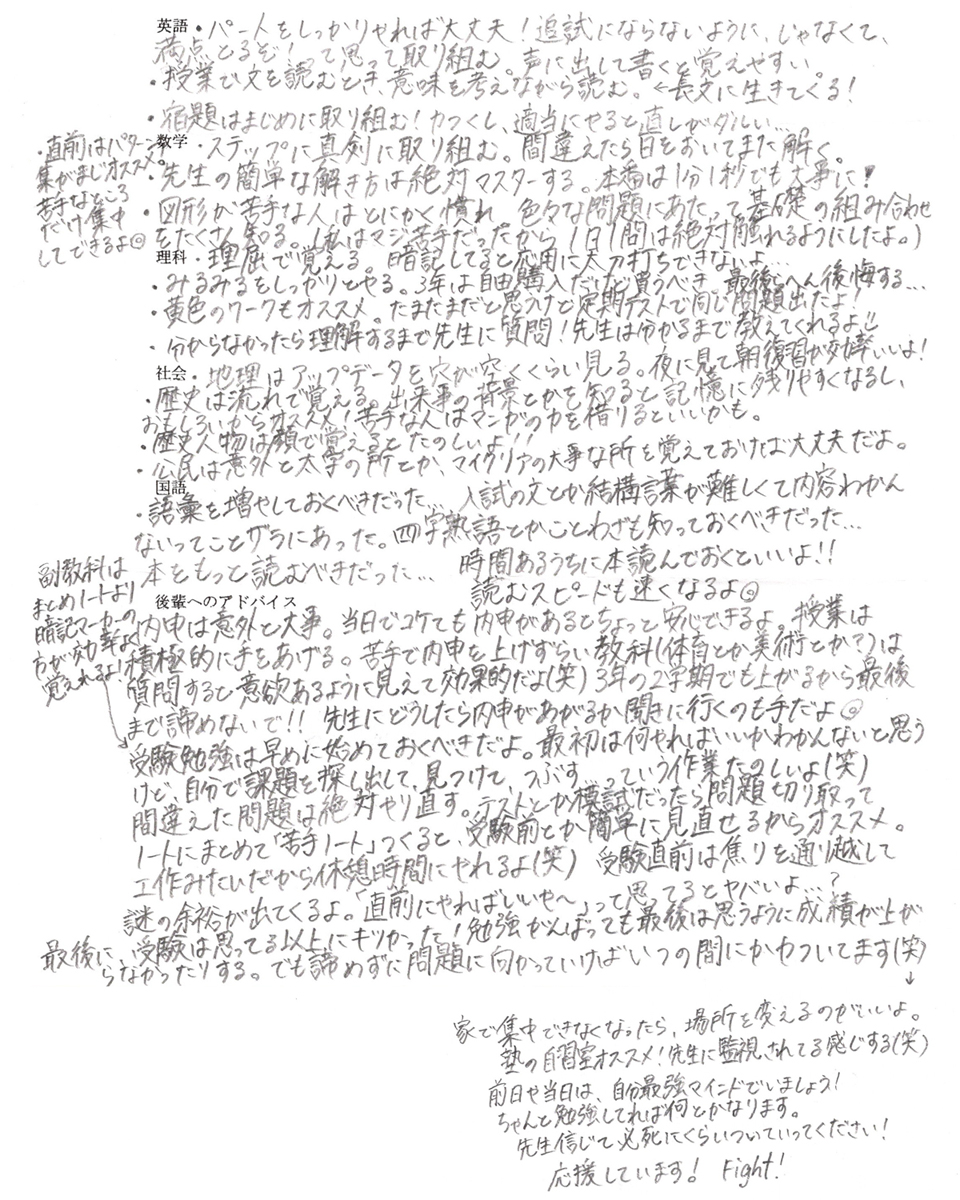 英語・パートをしっかりやれば大丈夫！追試にならないように、じゃなくて、
満点とるぞ！って思って取り組む。声に出して書くと覚えやすい。
・授業で文を読むとき、意味を考えながら読む。←長文に生きてくる！
・宿題はまじめに取り組む！力つくし、適当にやると直しがダルい…
数学・ステップに真剣に取り組む。間違えたら日をおいてまた解く。
・先生の簡単な解き方は絶対マスターする。本番は1分1秒でも大事に！
・図形が苦手な人はとにかく慣れ。色々な問題にあたって基礎の組み合わせ
をたくさん知る。（私はマジ苦手だったから1日1問は絶対触れるようにしたよ。）
・直前はパターン
集がまじオススメ。
苦手なところ
だけ集中
してできるよ☺
理科・理屈で覚える。暗記してると応用に太刀打ちできないよ…
・みるみるをしっかりとやる。3年は自由購入だけど買うべき。最後らへん後悔する…
・黄色のワークもオススメ。たまたまだと思うけど定期テストで同じ問題出たよ！
・分からなかったら理解するまで先生に質問！先生は分かるまで教えてくれるよ!!
社会・地理はアップデータを穴が空くくらい見る。夜に見て朝復習が効率いいよ！
・歴史は流れで覚える。出来事の背景とかを知ると記憶に残りやすくなるし、
おもしろいからオススメ！苦手な人はマンガの力を借りるといいかも。
・歴史人物は顔で覚えるとたのしいよ!!
・公民は意外と太字の所とか、マイクリアの大事な所を覚えておけば大丈夫だよ。
国語
・語彙を増やしておくべきだった… 入試の文とか結構言葉が難しくて内容わかん
ないってことザラにあった。四字熟語とかことわざも知っておくべきだった…
本をもっと読むべきだった… 時間あるうちに本読んでおくといいよ!!
読むスピードも速くなるよ☺
後輩へのアドバイス
内申は意外と大事。当日でコケても内申があるとちょっと安心できるよ。授業は
積極的に手をあげる。苦手で内申を上げずらい教科(体育とか美術とか？)は
質問すると意欲あるように見えて効果的だよ(笑) 3年の2学期でも上がるから最後
まで諦めないで!! 先生にどうしたら内申があがるか聞きに行くのも手だよ☺
副教科は
まとめノートより
暗記マーカーの
方が効率よく
覚えれるよ！
受験勉強は早めに始めておくべきだよ。最初は何やればいいかわかんないと思う
けど、自分で課題を探し出して、見つけて、つぶす…っていう作業たのしいよ(笑)
間違えた問題は絶対やり直す。テストとか模試だったら問題切り取って
ノートにまとめて「苦手ノート」つくると、受験前とか簡単に見直せるからオススメ。
工作みたいだから休憩時間にやれるよ(笑) 受験直前は焦りを通り越して
謎の余裕が出てくるよ。「直前にやればいいや〜」って思ってるとヤバいよ…？
最後に、受験は思ってる以上にキツかった！勉強がんばっても最後は思うように成績が上が
らなかったりする。でも諦めずに問題に向かっていけばいつの間にか力ついてます(笑)
↓
家で集中できなくなったら、場所を変えるのがいいよ。
塾の自習室オススメ！先生に監視されてる感じする(笑)
前日や当日は、自分最強マインドでいましょう！
ちゃんと勉強してれば何とかなります。
先生信じて、必死にくらいついていってください！
応援しています！ Fight!